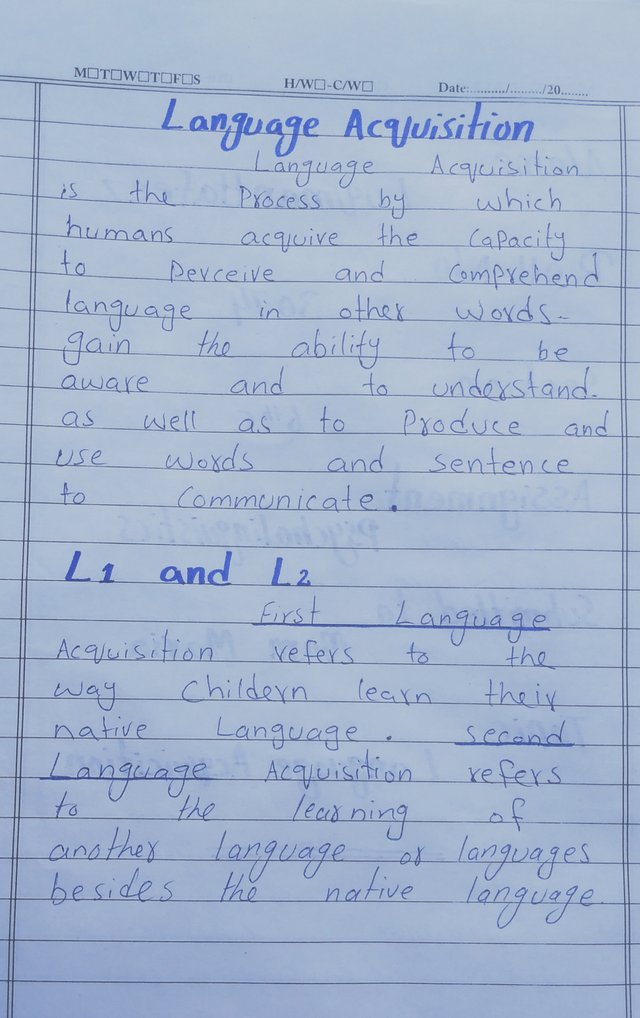 M☐T☐W☐T☐F☐S H/W☐-C/W☐ Date:........../........./20........
Language Acquisition
Language Acquisition
is the Process by which
humans acquire the capacity
to perceive and comprehend
language in other words-
gain the ability to be
aware and to understand.
as well as to produce and
use words and sentence
to communicate.
L1 and L2
First Language
Acquisition refers to the
way childern learn their
native Language. second
Language Acquisition refers
to the learning of
another language or languages
besides the native language.